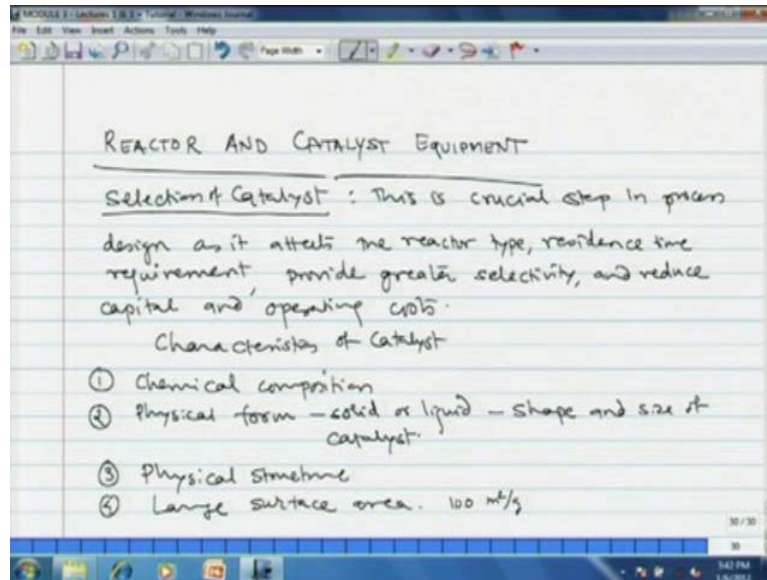 MODULE 3 - Lectures 1 & 3 + Tutorial - Windows Journal
File Edit View Insert Actions Tools Help
Page Width
REACTOR AND CATALYST EQUIPMENT
Selection of Catalyst : This is crucial step in process
design as it affects the reactor type, residence time
requirement, provide greater selectivity, and reduce
capital and operating costs.
Characteristics of Catalyst
① Chemical composition
② Physical form - solid or liquid - Shape and size of
catalyst.
③ Physical structure
④ Large surface area. 100 m²/g
30 / 30
30
5:42 PM